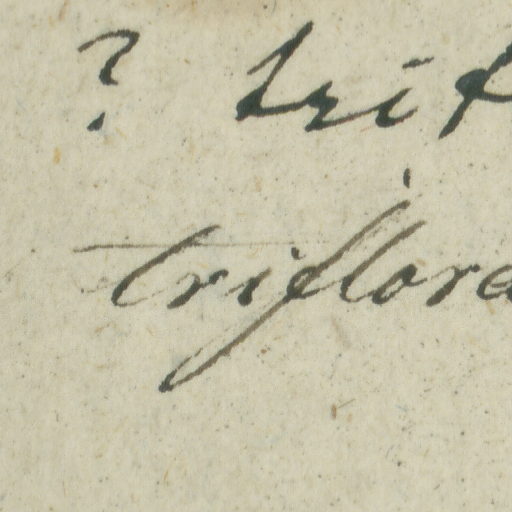 ? trif
triflora